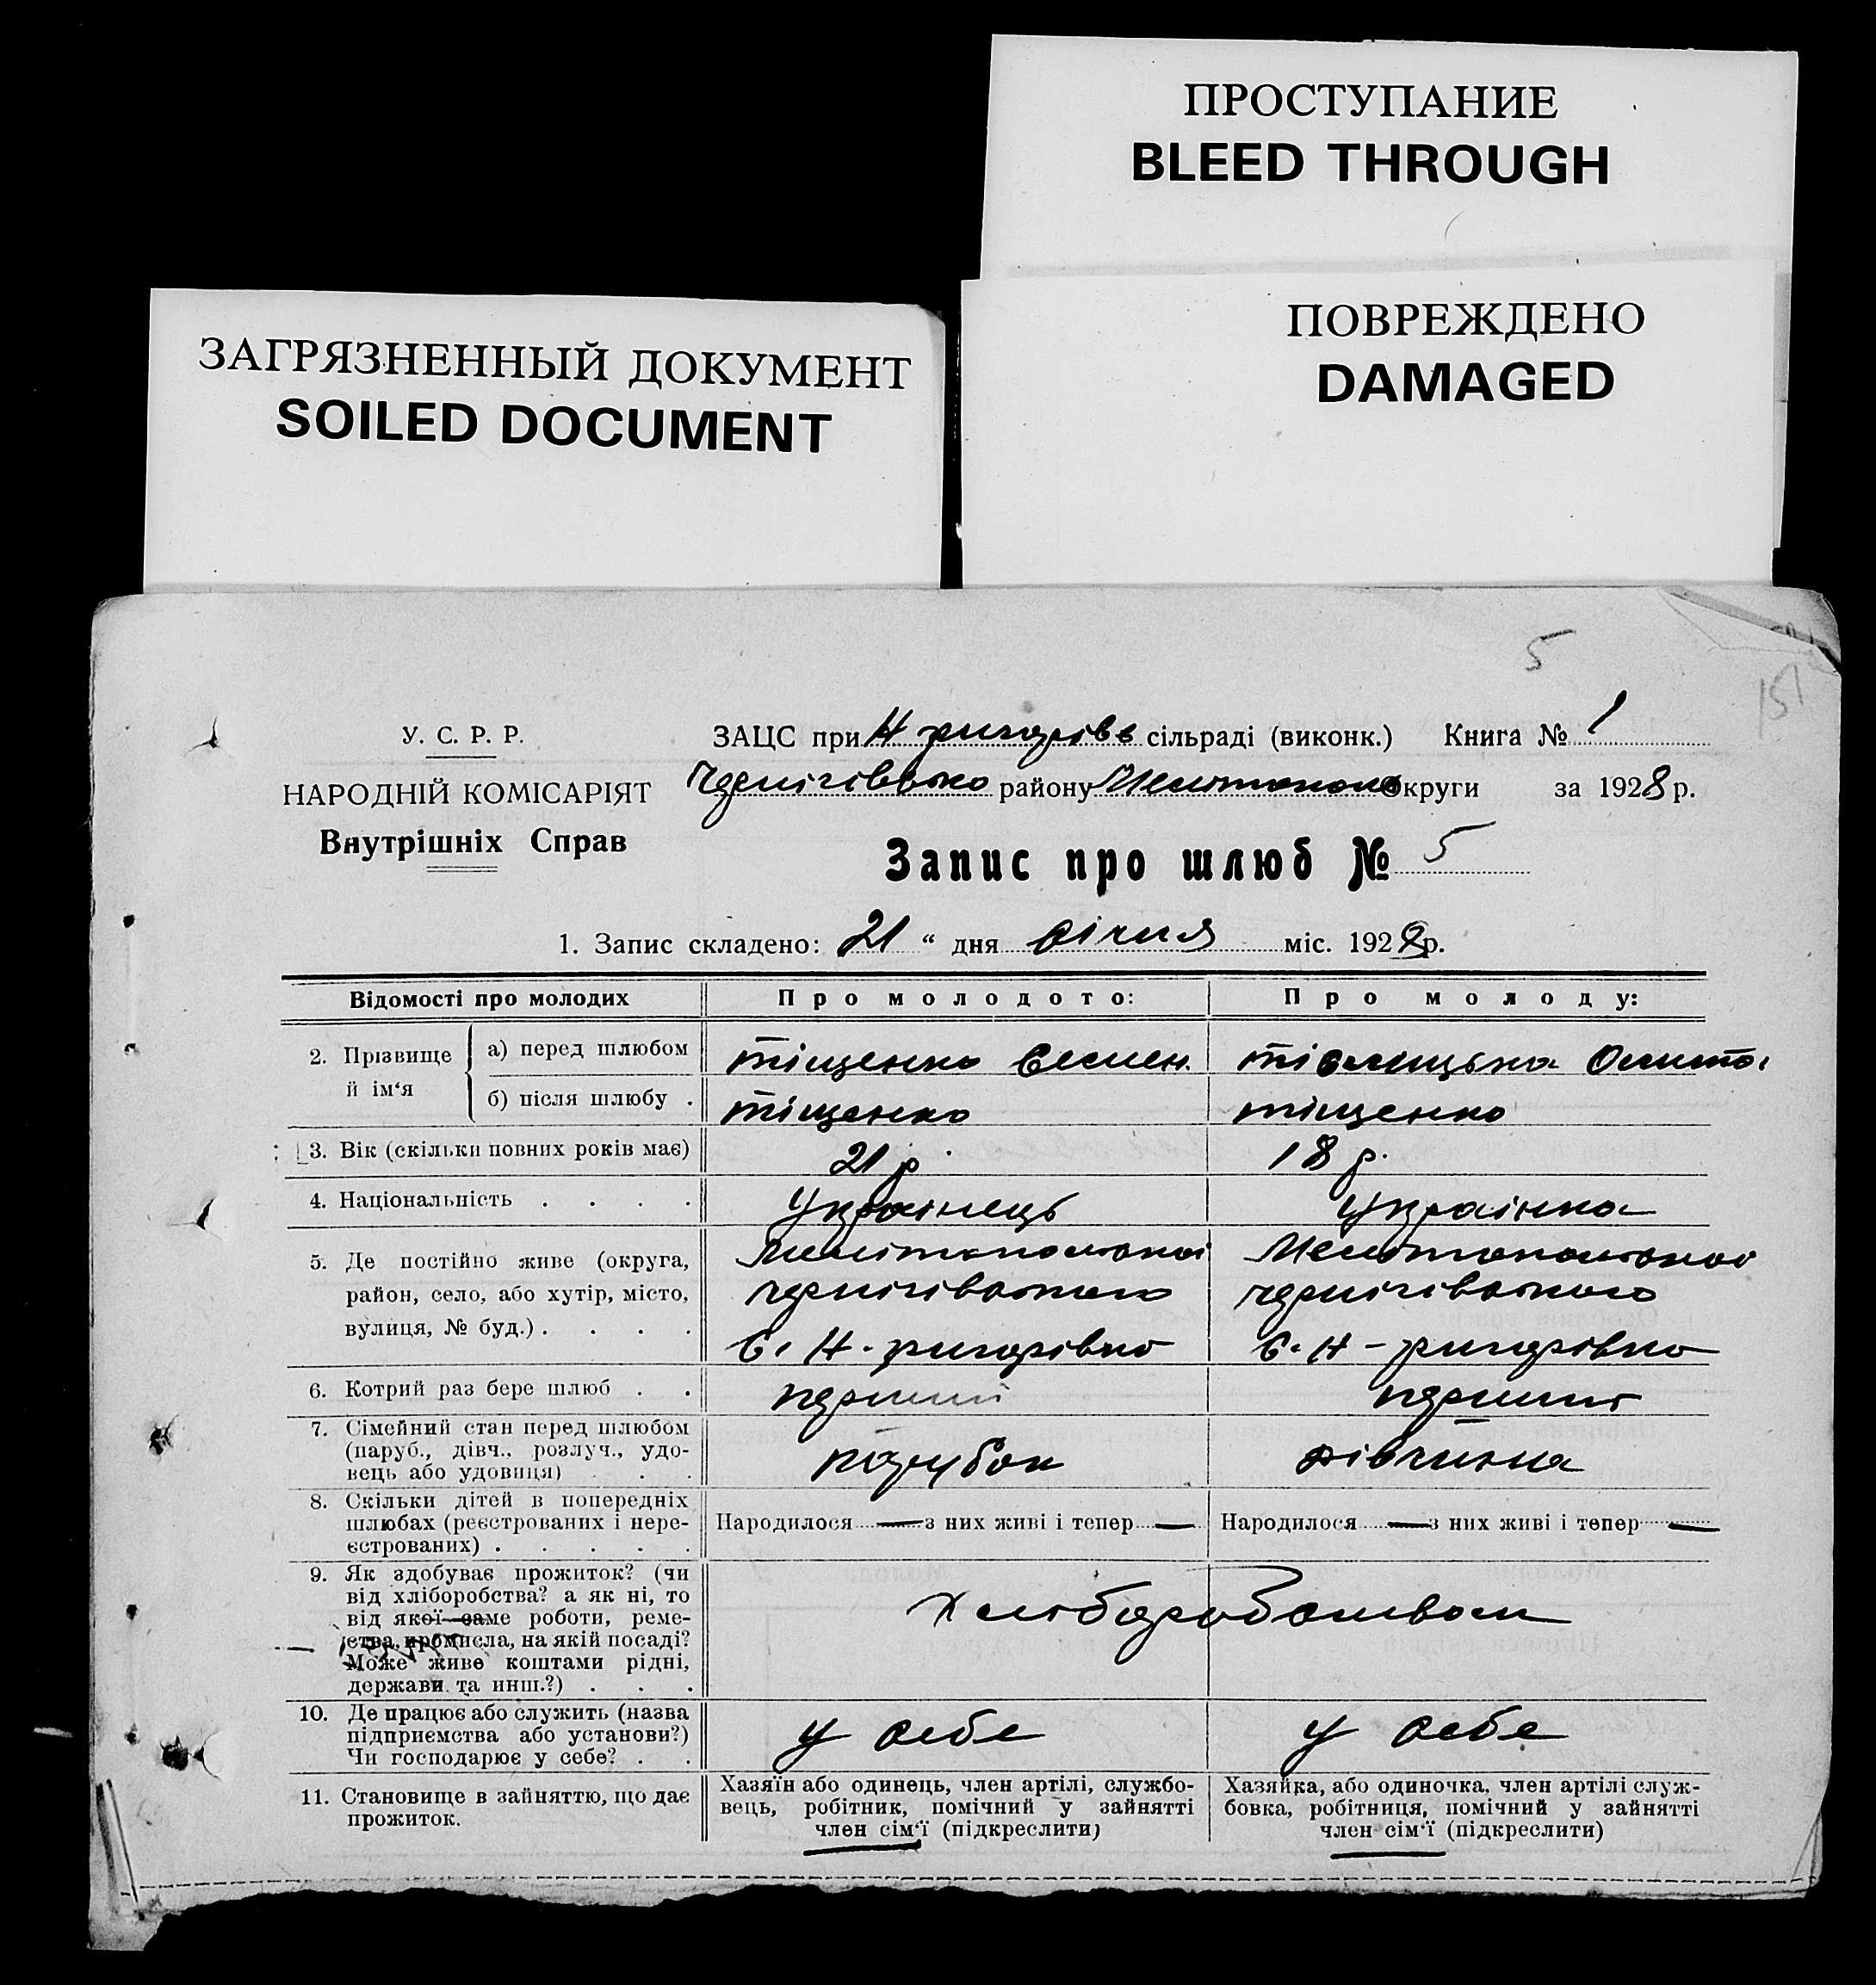 ПРОСТУПАНИЕ
BLEED THROUGH
ПОВРЕЖДЕНО
DAMAGED
ЗАГРЯЗНЕННЫЙ ДОКУМЕНТ
SOILED DOCUMENT
5
151
У. С. Р. Р.
НАРОДНІЙ КОМІСАРІЯТ
Внутрішніх Справ
ЗАЦС при сільраді (виконк.) Книга № 1
району округи за 1928 р.
Запис про шлюб № 5
1. Запис складено: 21 “ дня січня міс. 1928 р.
Відомості про молодих Про молодого: Про молоду:
2. Прізвище й ім‘я
а) перед шлюбом Тіщенко Семен
б) після шлюбу . Тіщенко Тіщенко
3. Вік (скільки повних років має) 21 р 18 р.
4. Національність . . . . Українець Українка
5. Де постійно живе (округа, Мелітопольської Мелітопольської
район, село, або хутір, місто, Чернігівського Чернігівського
вулиця, № буд.) . . . . с. Н-григорівка с. Н-григорівка
6. Котрий раз бере шлюб . . перший перший
7. Сімейний стан перед шлюбом
(паруб., дівч., розлуч., удо-
вець або удовиця) . . . парубок дівчина
8. Скільки дітей в попередніх
шлюбах (реєстрованих і нере-
єстрованих) . . . . .
Народилося — з них живі і тепер — Народилося — з них живі і тепер —
9. Як здобуває прожиток? (чи
від хліборобства? а як ні, то
від якої саме роботи, реме-
ства, промисла, на якій посаді?
Може живе коштами рідні,
держави та инш.?) . . .
Хліборобством
10. Де працює або служить (назва
підприємства або установи?)
Чи господарює у себе? . .
у себе у себе
11. Становище в зайняттю, що дає
прожиток.
Хазяїн або одинець, член артілі, службо-
вець, робітник, помічний у зайнятті
член сім‘ї (підкреслити)
Хазяйка, або одиночка, член артілі служ-
бовка, робітниця, помічний у зайнятті
член сім‘ї (підкреслити)